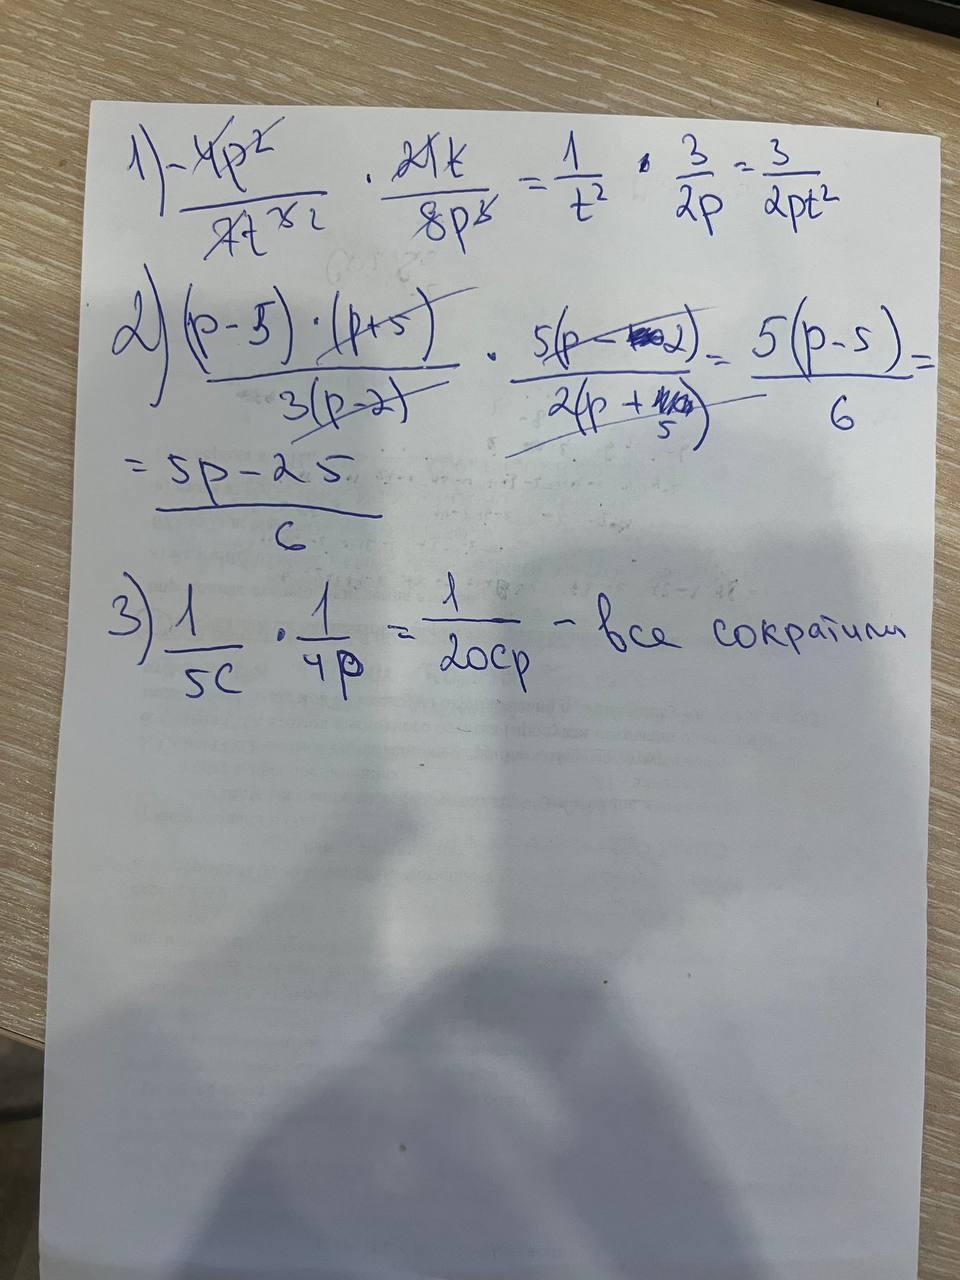 1) -4p²/7t³ ² · 21t/8p³ = 1/t² · 3/2p = 3/2pt²
2) (p-5)·(p+5)/3(p-2) · 5(p-2)/2(p+5) = 5(p-5)/6 =
= 5p-25/6
3) 1/5c · 1/4p = 1/20cp - все сократили